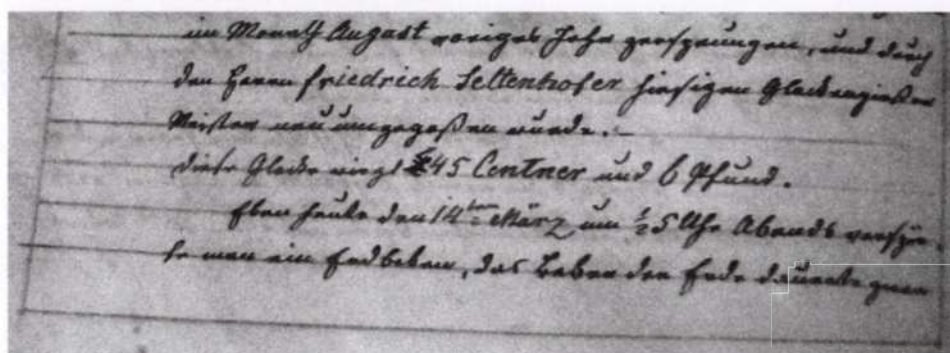 im Monath August voriges Jahr zersprungen, und durch
den Herrn Friedrich Seltenhofer hiesigen Glockengießer
Meister neu umgegoßen wurde.
diese Glocke wiegt 45 Centner und 6 Pfund.
Eben heute den 14ten März um ½ 5 Uhr Abends verspür
te man ein Erdbeben, das Beben der Erde dauerte zwar